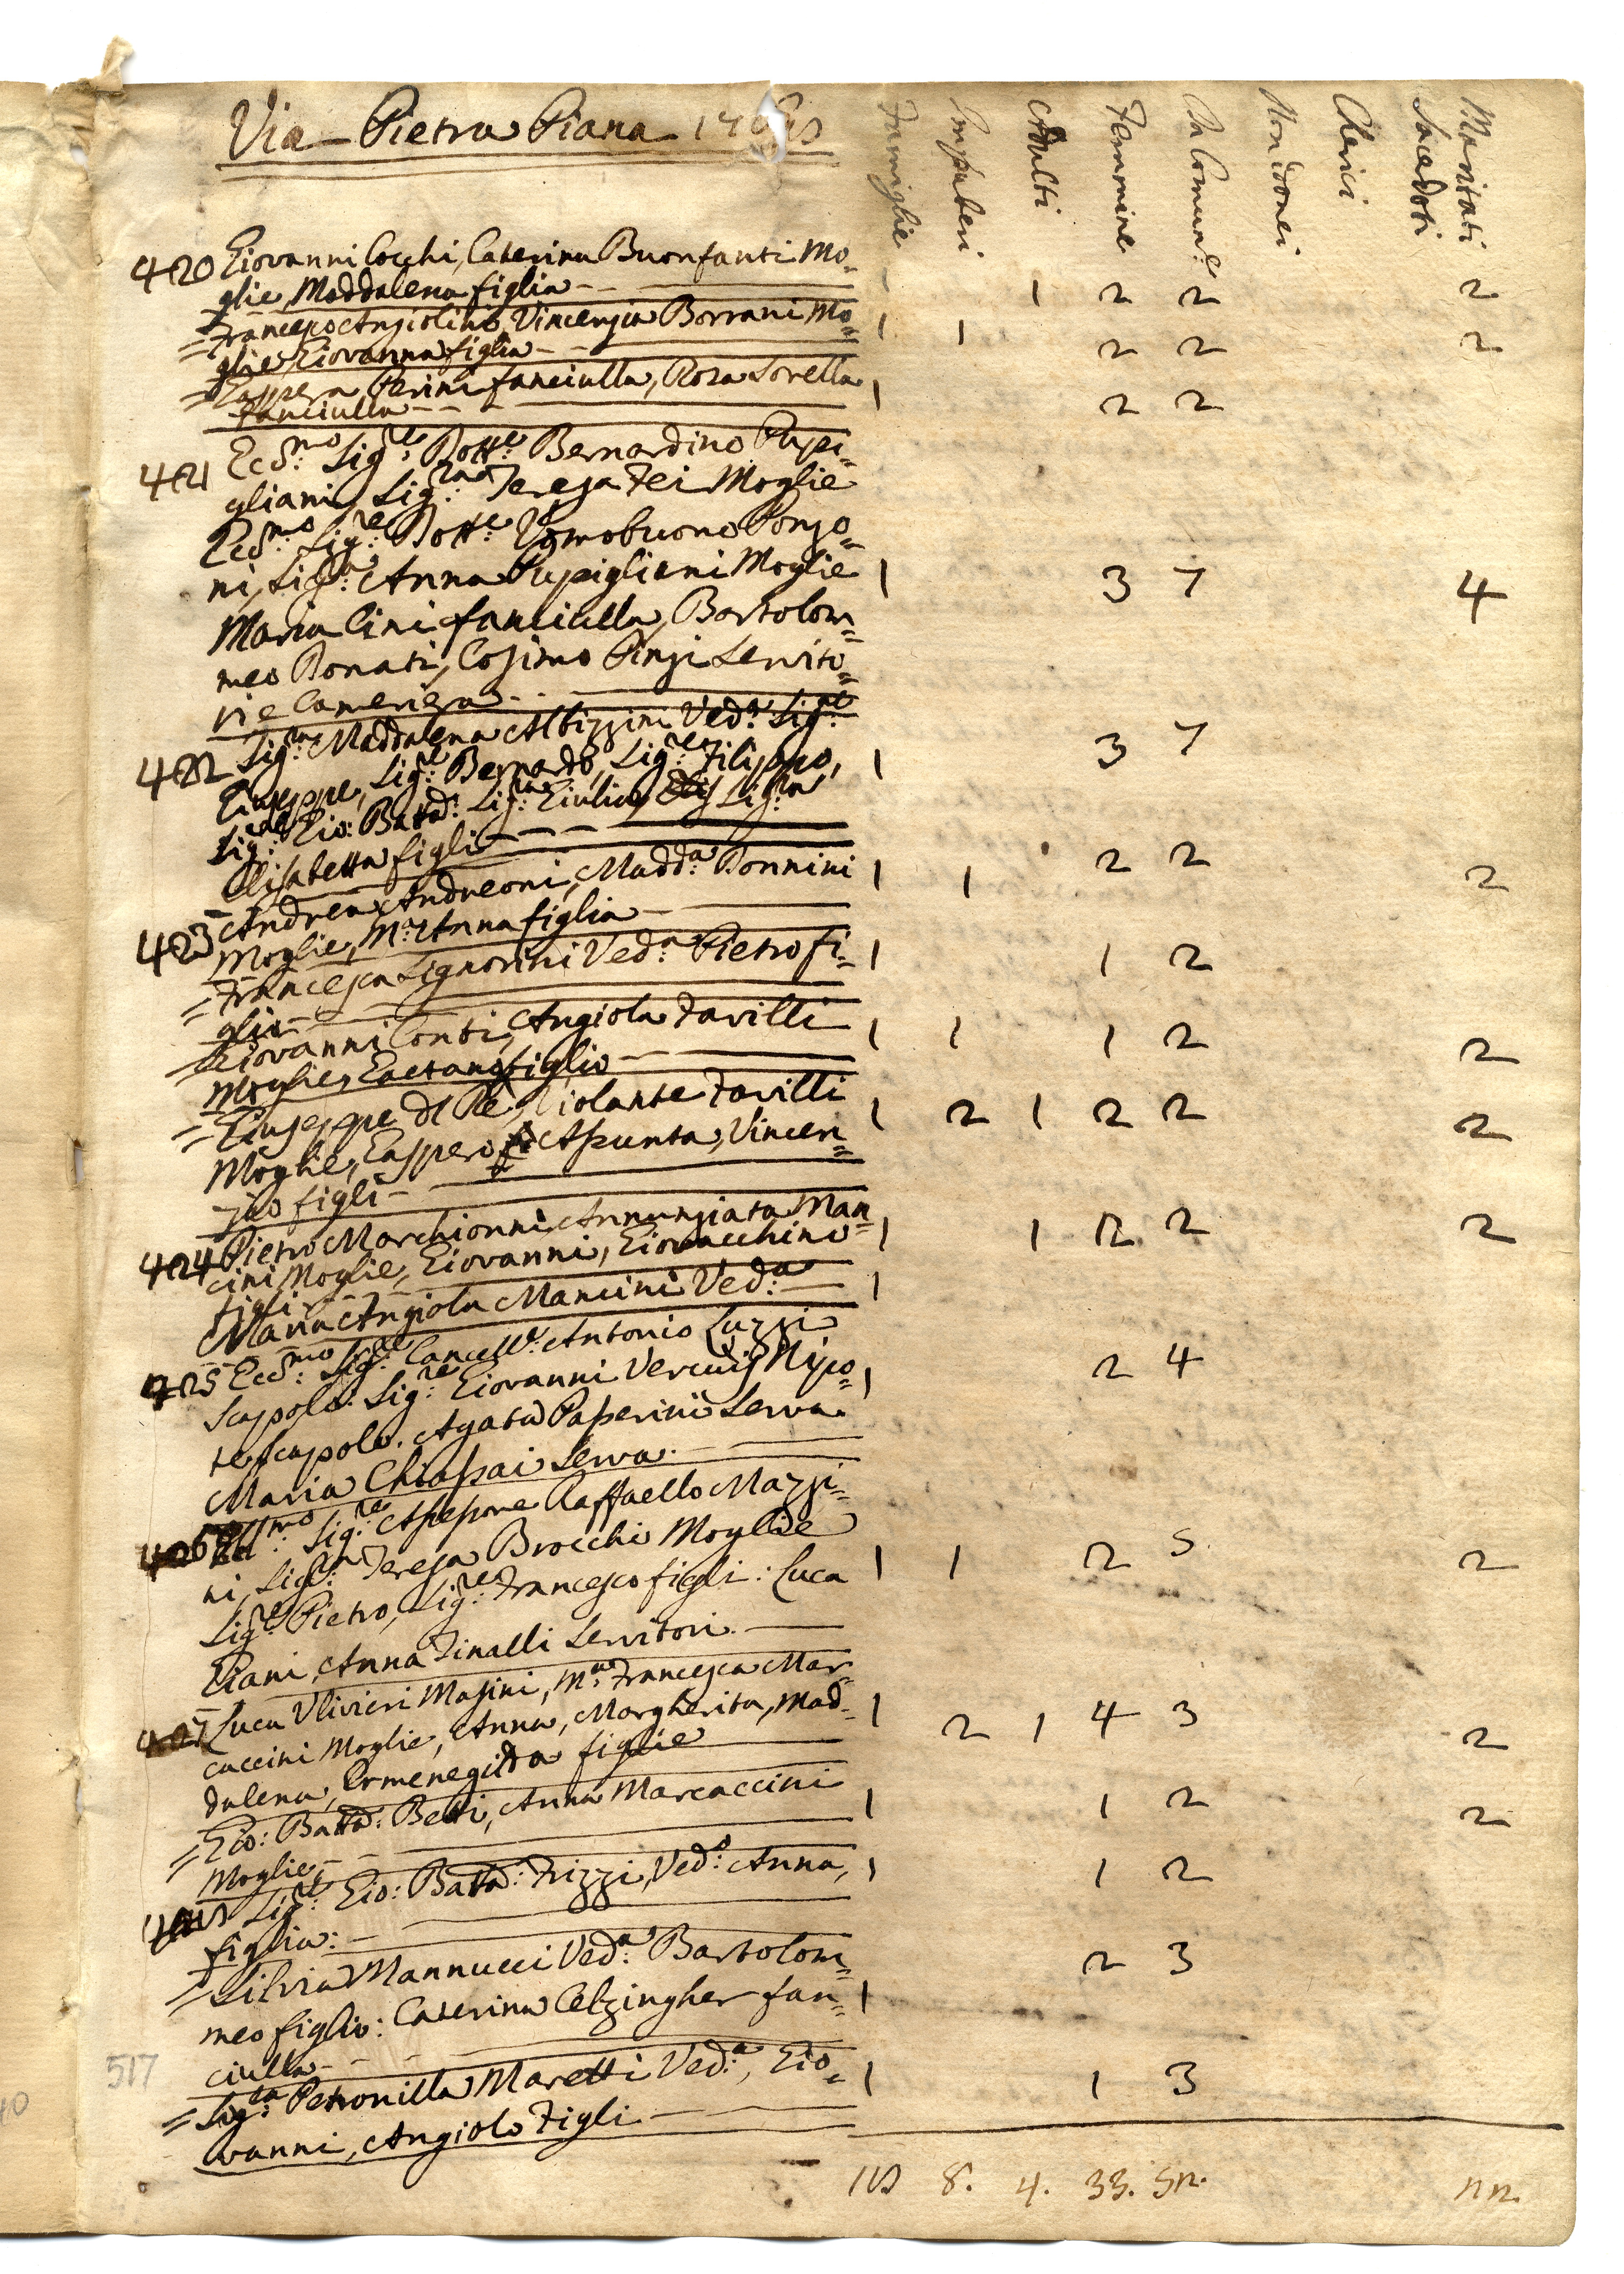 Via Pietra Piana
Famiglie Impuberi Adulti Femmine In Comune Non idonei Chierici Sacedoti Maritati
420 Giovanni Cocchi, Caterina Buonfanti Mo=
glie, Maddalena figlia - 1 2 2 2
= Francesco Angiolini, Vincenzia Borrani Mo= 1 1 2 2 2
glie, Giovanna figlia
= Gaspera Perini fanciulla, Rosa Sorella 1 2 2
fanciulla
421 Ecc.mo Sig.re Dott.e Bernardino Pupi=
gliani, Sig.ra Teresa Fei Moglie
Ecc.mo Sig.re Dott.e Uomobuono Ponzo=
ni, Sig.ra Anna Pupigliani Moglie 1 3 7 4
Maria Cini fanciulla, Bartolom=
meo Donati, Cosimo Pinzi Servito=
ri e Cameriera
422 Sig.ra Maddalena Albizzini Ved.a Sig.re 1 3 7
Giuseppe, Sig.re Bernardo, Sig.re Filippo,
Sig.re Gio: Batta: Sig.ra Giulia, Sig.ra
Elisabetta figli
423 Andrea Andreoni, Madd.a Bonnini 1 1 2 2 2
Moglie, M.a Anna figlia
= Francesca Signorini Ved.a Pietro fi= 1 1 2
glio
= Giovanni Conti, Angiola Favilli 1 1 1 2 2
Moglie, Gaetano figlio
= Giuseppe del Re, Violante Favilli 1 2 1 2 2 2
Moglie, Gaspero Assunta, Vincen=
zio figli
424 Pietro Marchionni Annunziata Man=
cini Moglie, Giovanni, Giovacchino 1 1 2 2 2
figli
Maria Angiola Mancini Ved.a 1
425 Ecc.mo Sig.re Cancell.e Antonio Luzzi
Scapolo. Sig.re Giovanni Nipo= 1 2 4
te scapolo. Agata Passerini Serva
Maria Chiassai Serva.
426 Ill.mo Sig.re Assessore Raffaello Mazzi=
ni, Sig.ra Teresa Brocchi Moglie
Sig.re Pietro, Sig.re Francesco figli: Luca 1 1 2 5. 2
Piani, Anna Finalli Servitori.
427 Luca Ulivieri Masini, M.a Francesca Mar=
caccini Moglie, Anna, Margherita, Mad= 1 2 1 4 3 2
dalena, Ermenegilda figlie
= Gio: Batta: Betti, Anna Marcaccini 1 1 2 2
Moglie
Sig.re Gio: Batta: Frizzi, Ved.o Anna, 1 1 2
figlia:
= Silvia Mannucci Ved.a Bartolom= 2 3
meo figlio: Caterina Celzingher fan= 1
ciulla
= Sig.ra Petronilla Maretti Ved.a, Gio= 1 1 3
vanni, Angiolo Figli
8. 4. 33. 52. 22.
517